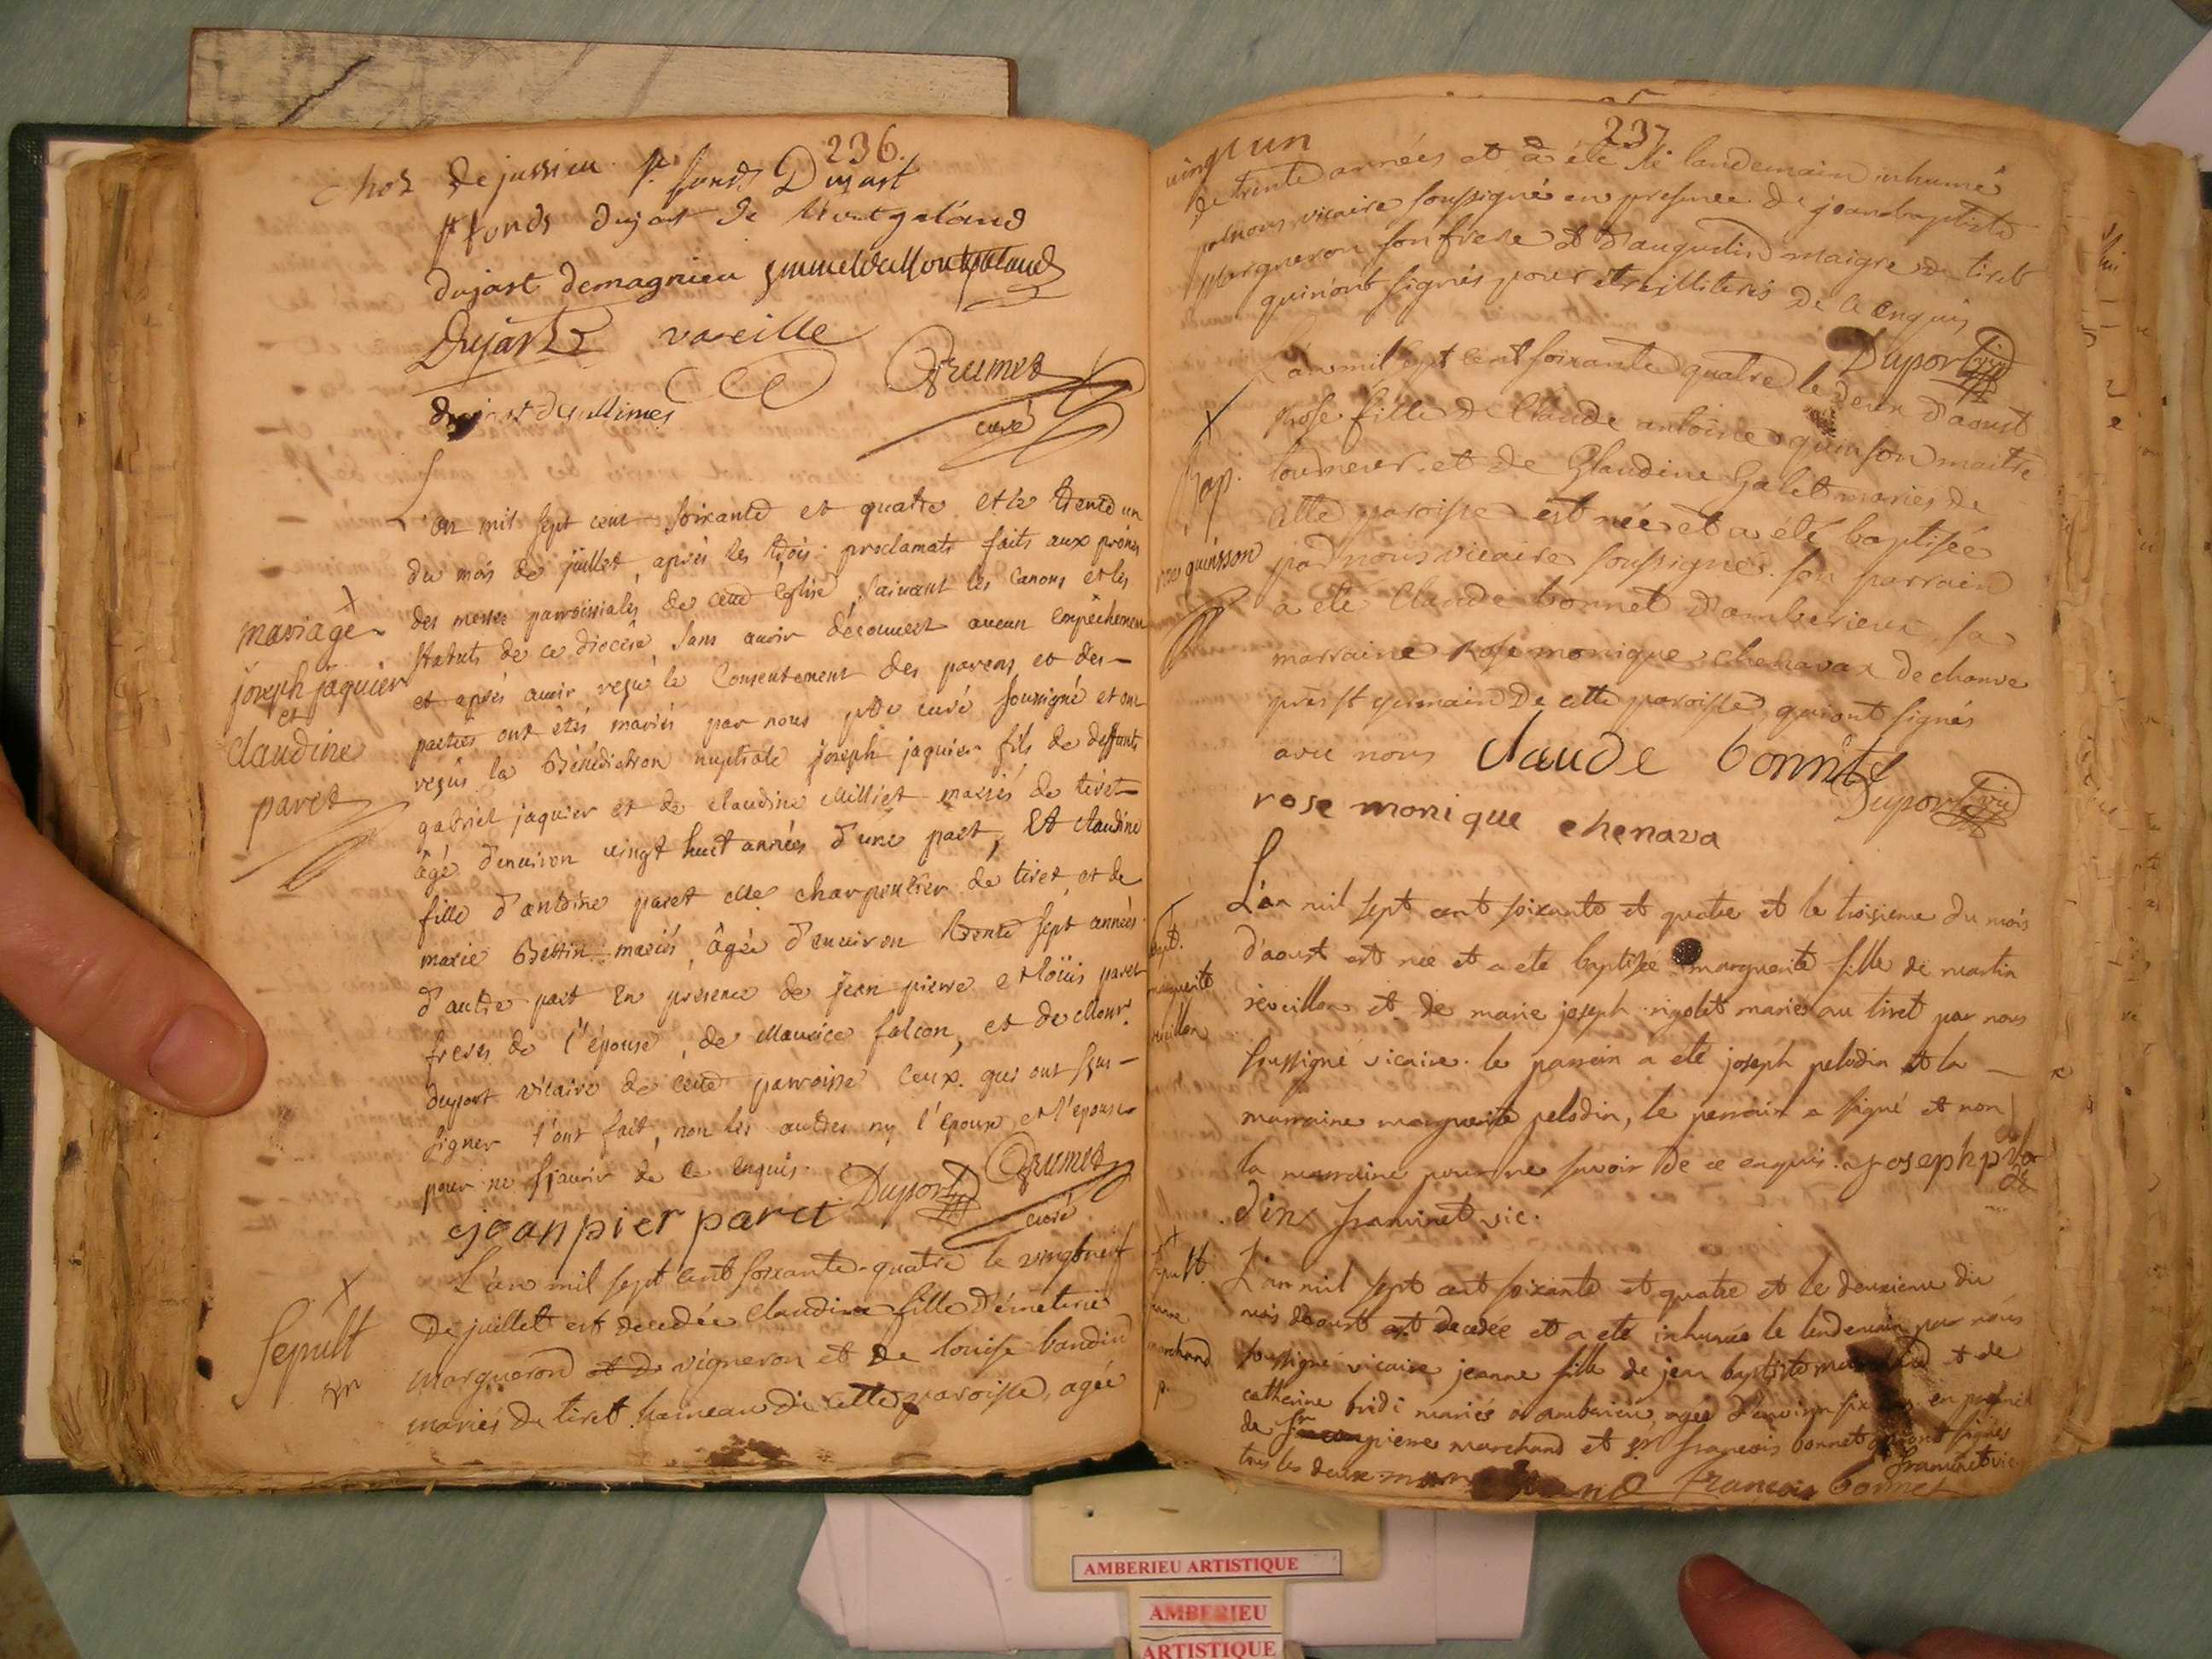 236.
chol de jussieu st fonds Dujast
st fonds dujast de Montgeland
dujast demagnieu
Dujast vareille
Grumet
curé
L'an mil sept cent soixante et quatre et le trente un
du mois de juillet, après les trois proclamats faits aux prônes
des messes parroissiales de cette Eglise, suivant les Canons et les
statuts de ce diocèse sans avoir découvert aucun empêchemen
et après avoir reçu le Consentement des parens et des
parties ont étés mariés par nous ptre curé soussigné et on
reçus la Bénédiction nuptiale joseph jaquier fils de deffunts
gabriel jaquier et de claudine Milliet mariés de tiret
âgé d'environ vingt huit années d'une part, Et claudine
fille d'antoine paret Me charpentier de tiret, et de
marie Bettin mariés, âgée d'environ trente sept années
d'autre part En présence de jean pierre et loüis paret
freres de l'épouse, de Maurice falcon, et de Monr.
duport vicaire de cette parroisse ceux qui ont sçus
signer l'ont fait, non les autres ny l'époux et l'épouse
pour ne sçavoir de ce enquis.
Duport Grumet
curé
jean pier paret
mariage
joseph jaquier
et
claudine
paret
L'an mil sept cent soixante-quatre le vingtneuf
De juillet est decedée claudine fille d'émeterie
margueron et de vigneron et de louise baudin
mariés de tiret hameau de cette paroisse, agée
Sepult
237
vingt un
de trente années et a été le landemain inhumé
par nous vicaire soussigné en presence de jean baptiste
margueron son frere et d'augustin maigre de tiret
qui n'ont signés pour etre illiterés de ce enquis
Duport vic
L'an mil sept cent soixante quatre le deux d'aoust
rose fille de Claude antoine quinson maitre
tourneur et de Claudine Galet mariés de
cette paroisse est née et a été baptisée
par nous vicaire soussigné. son parrain
a été Claude bonnet d'amberieux, sa
marraine rose monique chenavax de chanve
près st germain De cette paroisse, qui ont signés
avec nous Claude bonnet
Duport vic
rose monique chenava
Bap.
rose quinsson
L'an mil sept cent soixante et quatre et le troisieme du mois
d'aoust est née et a ete baptisée marguerite fille de martin
reveillon et de marie joseph rigolet mariés au tiret par nous
soussigné vicaire. le parrain a ete joseph pelodin et la
marraine marguerite pelodin, le parrain a signé et non
la marraine pour ne savoir de ce enquis. joseph pelo
din framinet vic.
L'an mil sept cent soixante et quatre et le deuxieme du
mois d'aoust est decedée et a ete inhumée le lendemain par nous
soussigné vicaire jeanne fille de jean baptiste et de
catherine bridi mariés d'amberieu, agée d'environ six en presence
de pierre marchand et sr françois bonnet qui ont signés
tous les deux framinet vic
francois bonnet
AMBERIEU ARTISTIQUE
AMBERIEU
ARTISTIQUE